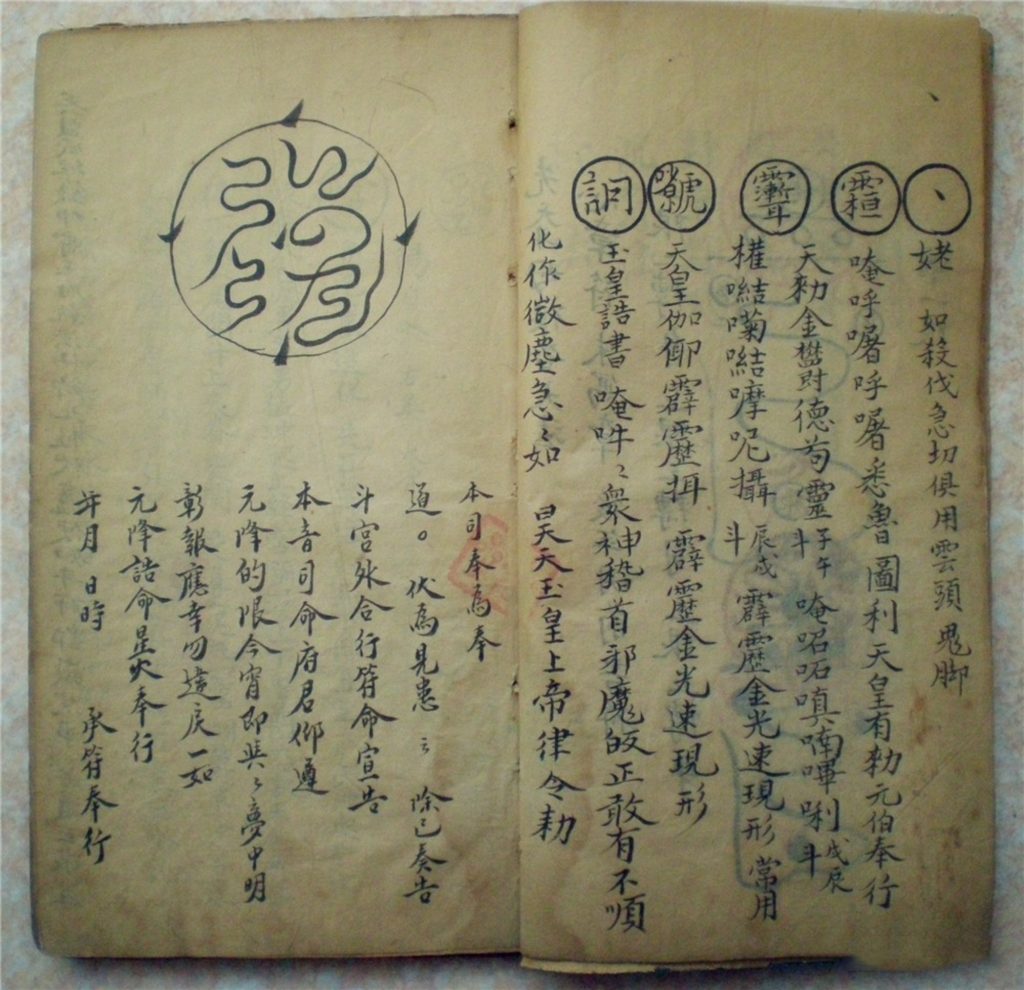 姥 如殺伐急切俱用雲頭鬼脚
唵呼囑呼囑悉魯圖利天皇有勑元伯奉行
天勑金 德 靈 子午斗 唵 㗢喃嗶唎 戌辰斗
權 結摩尼攝 辰戌斗 霹靂金光速現形 常用
天皇伽 霹靂揖 霹靂金光速現形
玉皇誥書 唵吽〻衆神稽首邪魔皈正敢有不順
化作微塵急〻如 昊天玉皇上帝律令勑
本司奉爲奉
道〇 伏爲見患 云 除已奏告
斗宮外合行符命宣告
本音司命府君仰遵
元降的限今宵即與〻夢中明
彰報應幸勿違戾一如
元降誥命星火奉行
年月 日時 承符奉行